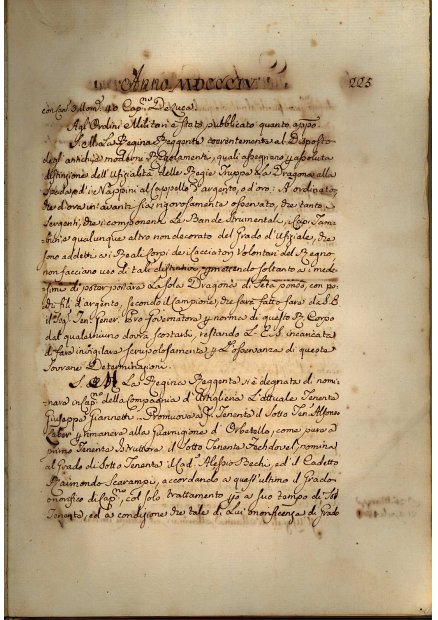 Anno MDCCCIV
225
Cap.no De Luca.
Agl'Ordini Militari è stato pubblicato quanto app.o
S. M. La Regina Reggente coerentemente al Disposto
degl'antichi, e moderni Regolamenti, quali assegnano
distinzione dell'Ufizialità delle Regie Truppe La Dragona alla
Spada, ed i Nappini al Cappello d'argento, o d'oro: A ordinato,
che d'ora in avanti sia rigorosamente osservato, che tanto i
Sergenti, che i componenti Le Bande Strumentali, i Capi Tam-
burini e qualunque altro non decorato del Grado d'Ufiziale, che
sono addetti ai Reali Corpi de Cacciatori Volontari del Regno,
non facciano uso di tale distintivo, soltanto a i mede-
simi di poter portare La sola Dragona di Seta ponsò, con po-
chi fili d'argento, secondo il campione, che sarà fatto fare da S. E.
il Sig. Ten. Gener. Governatore, e norma di questo R. Corpo
dal quale niuno dovrà scostarsi, restando L'E. S. incaricata
di fare invigilare scrupolosamente L'osservanza di queste
Sovrane Determinazioni.
S. M. La Regina Reggente si è degnata di nomi-
nare in Cap.no della Compagnia d'Artiglieria L'attuale Tenente
Giuseppe Giannetti. Promuove a Tenente il Sotto Ten. Alfonso
e rimanere alla Guarnigione d'Orbetello, come pure a
primo Tenente Istruttore il Sotto Tenente nomina
al Grado di Sotto Tenente il Cad.o Alessio Bechi, ed il Cadetto
Raimondo Scarampi, accordando a quest'ultimo il Grado
onorifico di Cap.no, col solo trattamento a suo tempo di Sotto
Tenente, ed a condizione che tale di Lui onorificenza di Grado